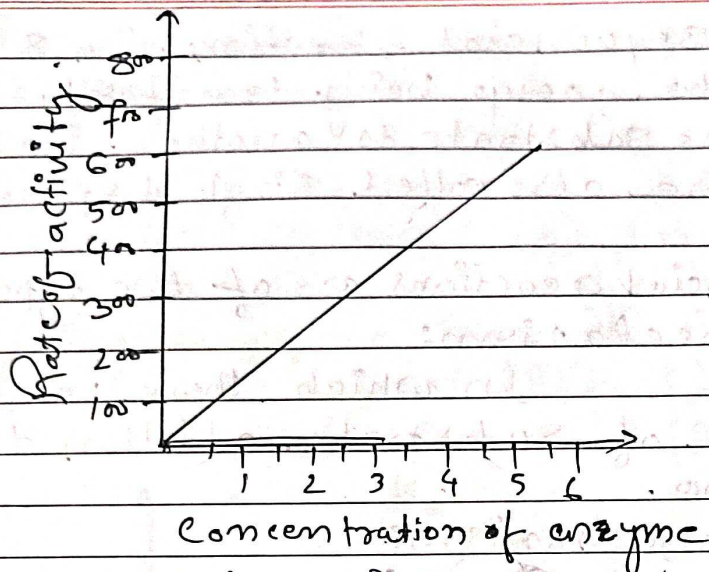 Rate of activity.
800
700
600
500
400
300
200
100
1 2 3 4 5 6
Concentration of enzyme